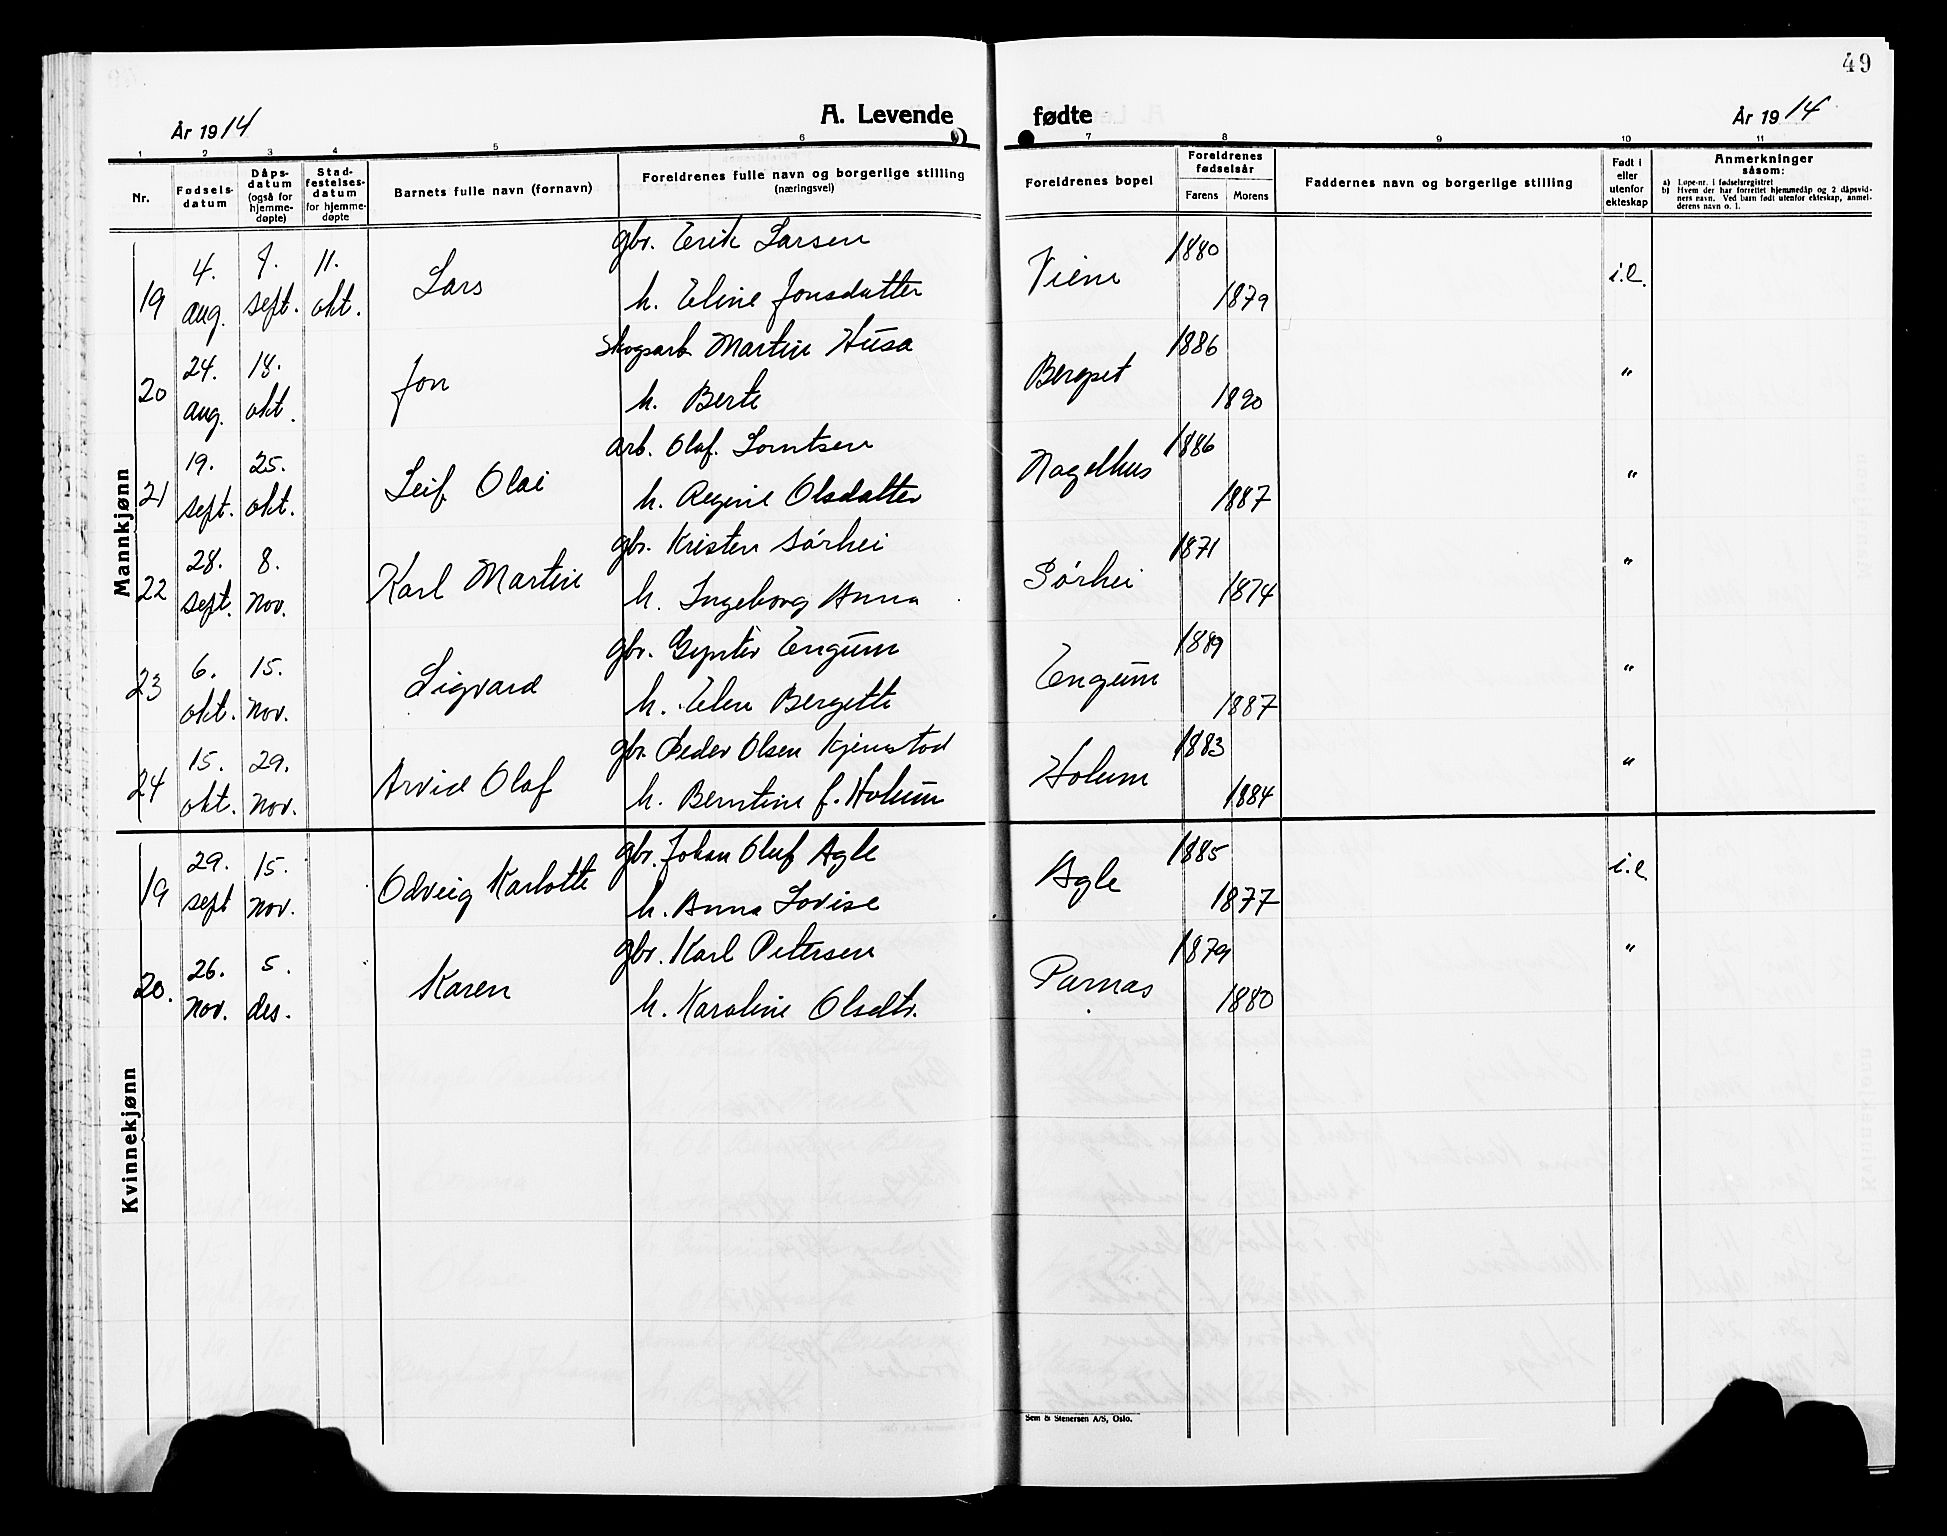 49
År 1914 A. Levende fødte År 1914
1 2 3 4 5 6 7 8 9 10 11
Nr. Fødsels-datum Dåps-datum (også for hjemme-døpte) Stad-festelses-datum for hjemme-døpte Barnets fulle navn (fornavn) Foreldrenes fulle navn og borgerlige stilling (næringsvei) Foreldrenes bopel Foreldrenes fødselsår Farens Morens Faddernes navn og borgerlige stilling Født i eller utenfor ekteskap Anmerkninger såsom:
a) Løpe-nr. i fødselsregistret
b) Hvem der har forrettet hjemmedåp og 2 dåpsvid-
ners navn. Ved barn født utenfor ekteskap, anmel-
derens navn o. l.
Mannkjønn
19 4. aug. 7. sept. 11. okt. Lars gbr. Erik Larsen Viem 1880 i.e.
h. Eline Jonsdatter 1879
20 24. aug. 18. okt. Jon Skogsarb. Martin Husa Bergset 1886 "
h. Berte 1890
21 19. sept. 25. okt. Leif Olai arb. Olaf Lorntsen Nagelhus 1886 "
h. Regine Olsdatter 1887
22 28. sept. 8. nov. Karl Martin gbr. Kristen Sørhei Sørhei 1871 "
h. Ingeborg Anna 1874
23 6. okt. 15. nov. Sigvard gbr. Engum Engum 1889 "
h. Elen Bergette 1887
24 15. okt. 29. nov. Arvid Olaf gbr. Peder Olsen Kjenstad Holum 1883 "
h. Berntine f. Holum 1884
Kvinnekjønn
19 29. sept 15. nov. Odveig Karlotte gbr. Johan Oluf Agle Agle 1885 i.e
h. Anna Lovise 1877
20. 26. nov. 5. des. Karen gbr. Karl Petersen Parnas 1879 "
h. Karoline Olsdtr. 1880
Sem & Stenersen A/S, Oslo.